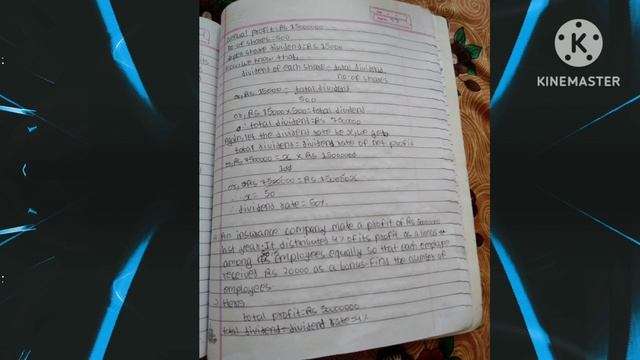 Annual profit = Rs 15000000
no. of shares = 500
per share dividend = Rs 15000
Now, we know that,
dividend of each share = total dividend
no. of shares
or, Rs 15000 = total dividend
500
or, Rs 15000 × 500 = total dividend
∴ total dividend = Rs 7500000
Again, let the dividend rate be x, we get
total dividend = dividend rate of net profit
or, Rs 7500000 = x × Rs 15000000
100
∴ x = 50
∴ dividend rate = 50%
An insurance company make a profit of Rs
last year. It distributed 4% of its profit as a bonus
among employees equally so that each employee
received Rs 20000 as a bonus. Find the number of
employees
Here,
total profit = Rs
total dividend = dividend rate = 4%
KINEMASTER